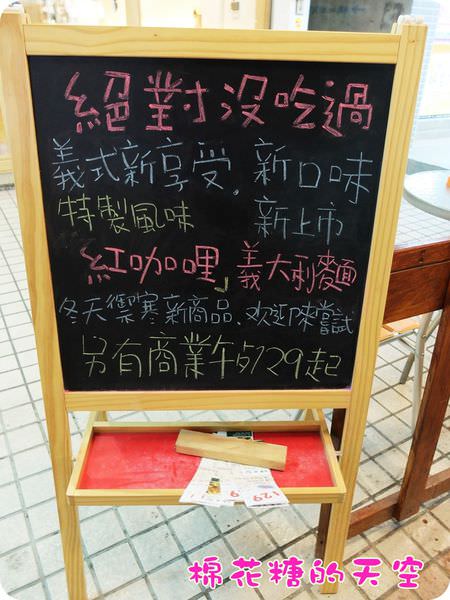 絕對沒吃過
義式新享受, 新口味
特製風味 新上市
紅咖哩」義大利麵
冬天禦寒新商品、欢迎來嘗試
另有商業午$129起
129
棉花糖的天空